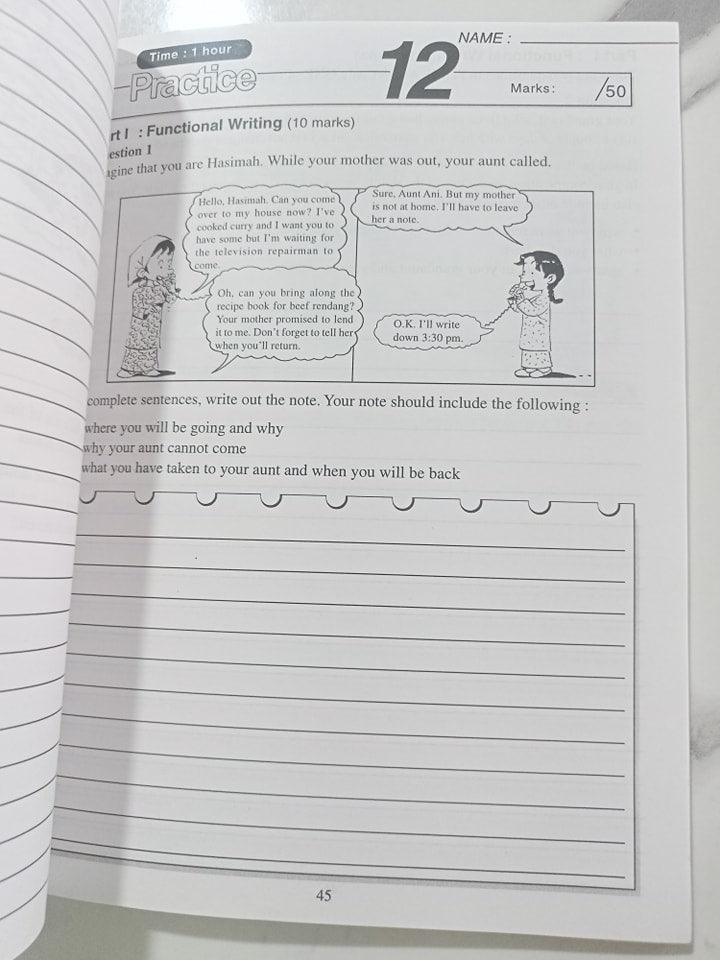 Time : 1 hour
Practice
12
NAME :
Marks: /50
rt I : Functional Writing (10 marks)
estion 1
agine that you are Hasimah. While your mother was out, your aunt called.
Hello, Hasimah. Can you come
over to my house now? I've
cooked curry and I want you to
have some but I'm waiting for
the television repairman to
come.
Sure, Aunt Ani. But my mother
is not at home. I'll have to leave
her a note.
Oh, can you bring along the
recipe book for beef rendang?
Your mother promised to lend
it to me. Don't forget to tell her
when you'll return.
O.K. I'll write
down 3:30 pm.
complete sentences, write out the note. Your note should include the following :
where you will be going and why
why your aunt cannot come
what you have taken to your aunt and when you will be back
45